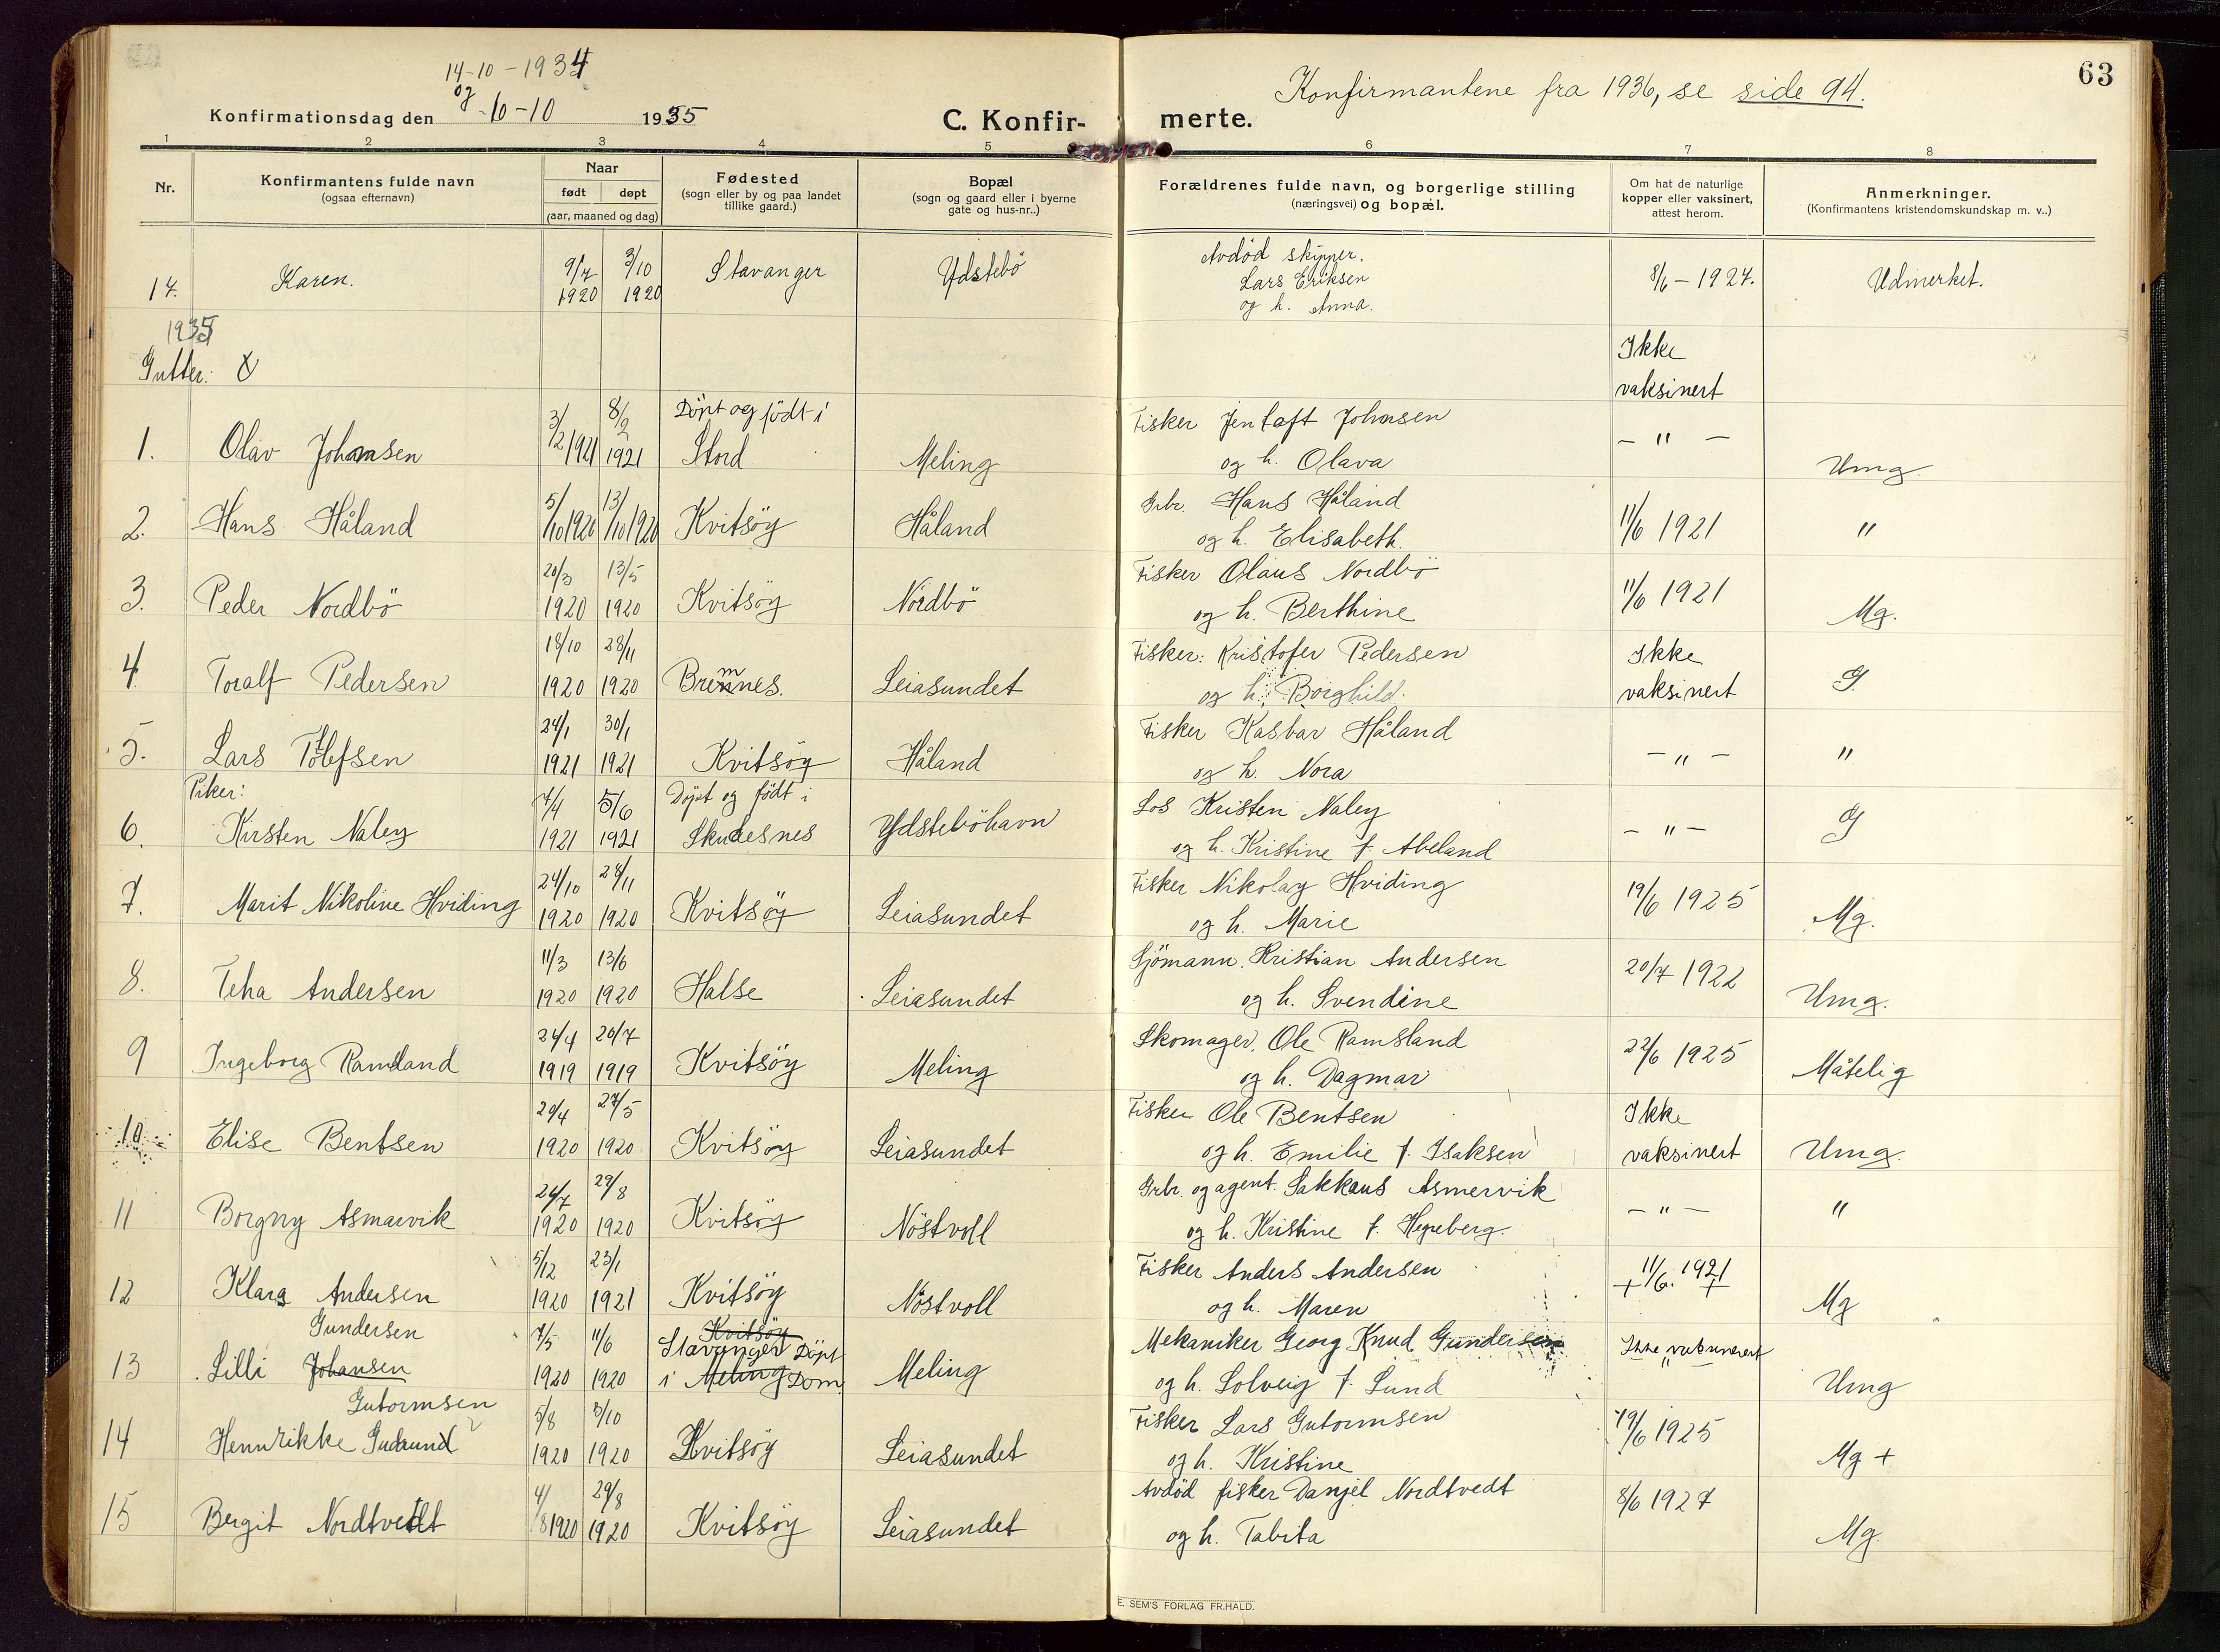 14-10-1934
og
Konfirmationsdag den -6-10 1935
C. Konfirmerte.
Konfirmantene fra 1936, se side 94.
63
1 2 3 4 5 6 7 8
Nr.
Konfirmantens fulde navn
(ogsaa efternavn)
Naar
født døpt
(aar, maaned og dag)
Fødested
(sogn eller by og paa landet
tillike gaard.)
Bopæl
(sogn og gaard eller i byerne
gate og hus-nr..)
Forældrenes fulde navn, og borgerlige stilling
(næringsvei) og bopæl.
Om hat de naturlige
kopper eller vaksinert,
attest herom.
Anmerkninger.
(Konfirmantens kristendomskundskap m. v..)
17. Karen. 9/7 1920 3/10 1920 Stavanger Ydstebö Avdöd skipper. Lars Eriksen og h. Anna. 8/6 - 1927. Udmerket.
1935
Gutter:
Ikke
vaksinert
1. Olav Johansen 3/2 1921 8/2 1921 Döpt og födt i Stord Meling Fisker Jentoft Johansen og h. Olava - " - Umg.
2. Hans Håland 5/10 1920 13/10 1920 Kvitsöy Håland Grbr. Hans Håland og h. Elisabeth. 11/6 1921 "
3. Peder Nordbö 20/3 1920 13/5 1920 Kvitsöy Nordbö Fisker Olaus Nordbö og h. Berthine 11/6 1921 Mg.
4. Toralf Pedersen 18/10 1920 28/11 1920 Bremnes. Leiasundet Fisker: Kristofer Pedersen og h. Borghild. Ikke vaksinert G.
5. Lars Tollefsen 24/1 1921 30/1 1921 Kvitsöy Håland Fisker Kasbar Håland og h. Nora - " - "
Piker:
6. Kirsten Naley 7/4 1921 5/6 1921 Döpt og födt i Skudesnes Ydsteböhavn Los Kristen Naley og h. Kristine f. Abeland - " - G
7. Marit Nikoline Hviding 24/10 1920 28/11 1920 Kvitsöy Leiasundet Fisker Nikolay Hviding og h. Marie 19/6 1925 Mg.
8. Teha Andersen 11/3 1920 13/6 1920 Halse Leiasundet Sjömann. Kristian Andersen og h. Svendine 20/7 1922 Umg.
9 Ingeborg Ramsland 24/4 1919 20/7 1919 Kvitsöy Meling Skomager. Ole Ramsland og h. Dagmar 22/6 1925 Måtelig
10 Elise Bentsen 29/4 1920 27/5 1920 Kvitsöy Leiasundet Fisker Ole Bentsen og h. Emilie f. Isaksen Ikke vaksinert Umg.
11 Borgny Asmarvik 26/7 1920 29/8 1920 Kvitsöy Nöstvoll Grbr. og agent. Sakkaus Asmervik og h. Kristine f. Hegreberg. - " - "
12 Klara Andersen 5/12 1920 23/1 1921 Kvitsöy Nöstvoll Fisker Anders Andersen og h. Maren + 11/6. 1921 + Mg
13 Lilli Johansen Gundersen 7/5 1920 11/6 1920 Kvitsöy Stavanger Döpt i Meling Dom Meling Mekaniker Georg Knud Gundersen og h. Solveig f. Lund Ikke vaksinert Umg
14 Hennrikke Gudrund Gutormsen 5/8 1920 3/10 1920 Kvitsöy Leiasundet Fisker Lars Gutormsen og h. Kristine 19/6 1925 Mg +
15 Bergit Nordtvedt 4/8 1920 29/8 1920 Kvitsöy Leiasundet Avdöd fisker Danjel Nordtvedt og h. Tabita 8/6 1927 Mg.
E. SEM'S FORLAG FR.HALD.